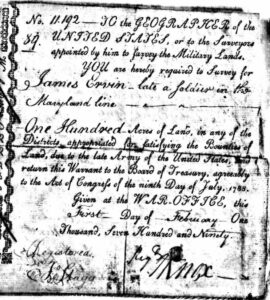 No. 11.192 — TO the GEOGRAPHER of the
UNITED STATES, or to the Surveyors
appointed by him to survey the Military Lands.
YOU are hereby required to Survey for
James Ervin late a Soldier in the
Maryland Line
One Hundred Acres of Land, in any of the
Districts appropriated for satisfying the Bounties of
Land, due to the late Army of the United States, and
return this Warrant to the Board of Treasury, agreeably
to the Act of Congress of the ninth Day of July, 1788.
Given at the WAR-OFFICE, this
First Day of February One
Thousand, Seven Hundred and Ninety.
Registered
Knox